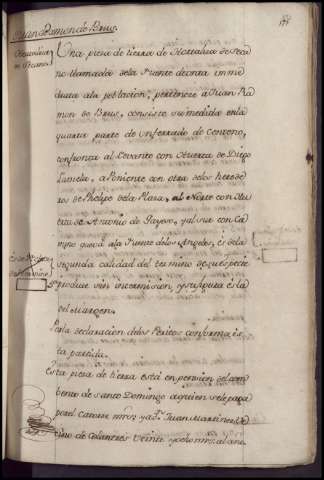 Juan Ramon de Brus.
Una pieza de tierra de Hortaliza de Seca
no llamada de la Fuente de cruz imme
diata ala poblacion, perteneze a Juan Ra
mon de Brus, consiste su medida en la
quarta parte de un ferrado de Centeno,
confronta al Levante con Huerta de Diego
Lamela, a Poniente con otra delos herede
ros de Phelipe dela Plaza, al Norte con Hu
erta de Antonio de Payson, y al sur con Ca
mino que va ala Fuente delos Angeles, es dela
segunda calidad del termino de su especie
produce sin intermision, y su figura es la
del Margen.
Por la declaracion delos Peritos conforma es
ta partida.
Esta pieza de tierra está en pension del com
bento de santo Domingo a quien se le paga
por el Catorze mrs. y a Dn. Juan Martinez Ve
cino de Colantres Veinte y ocho mrs. al ano.